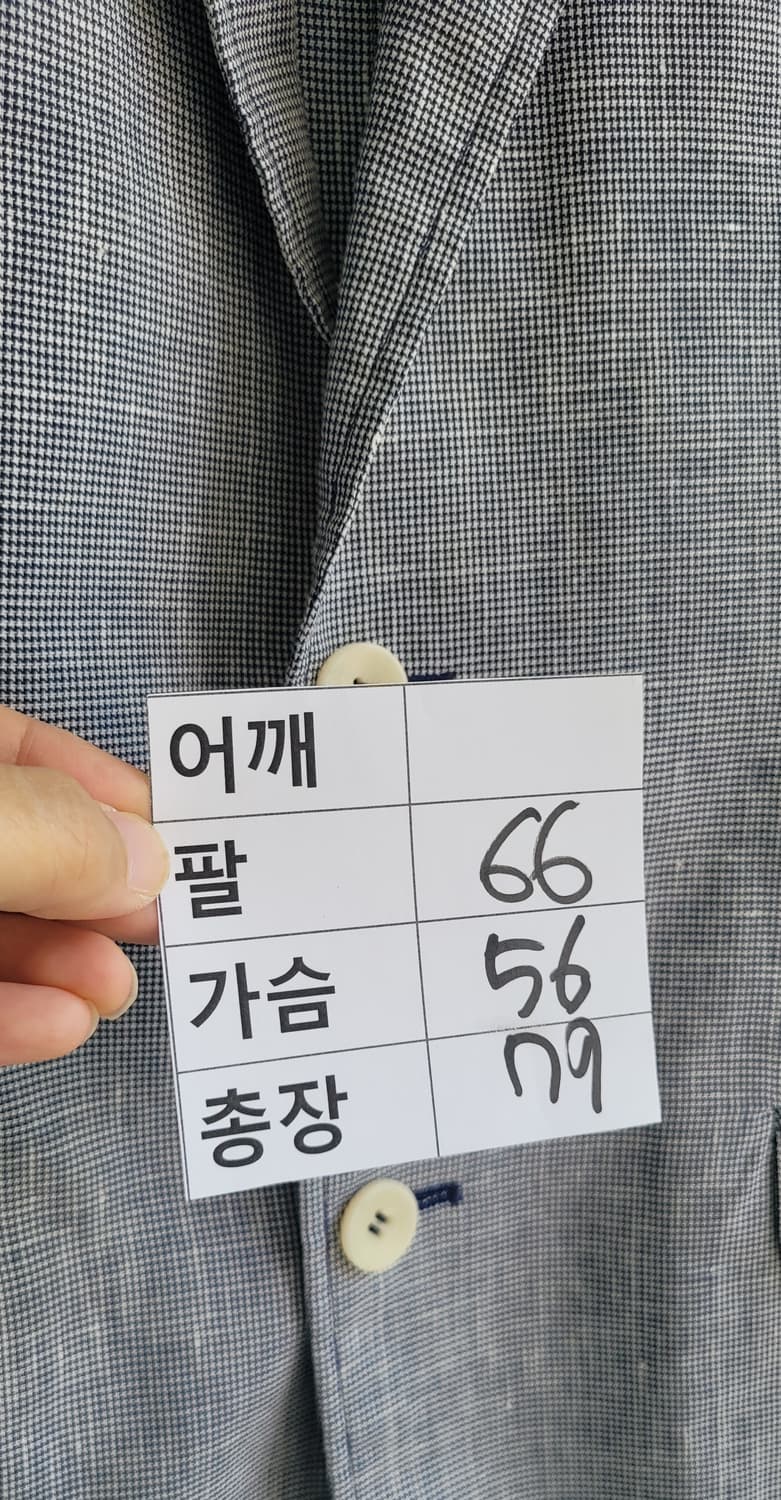 어깨
팔 66
가슴 56
총장 79